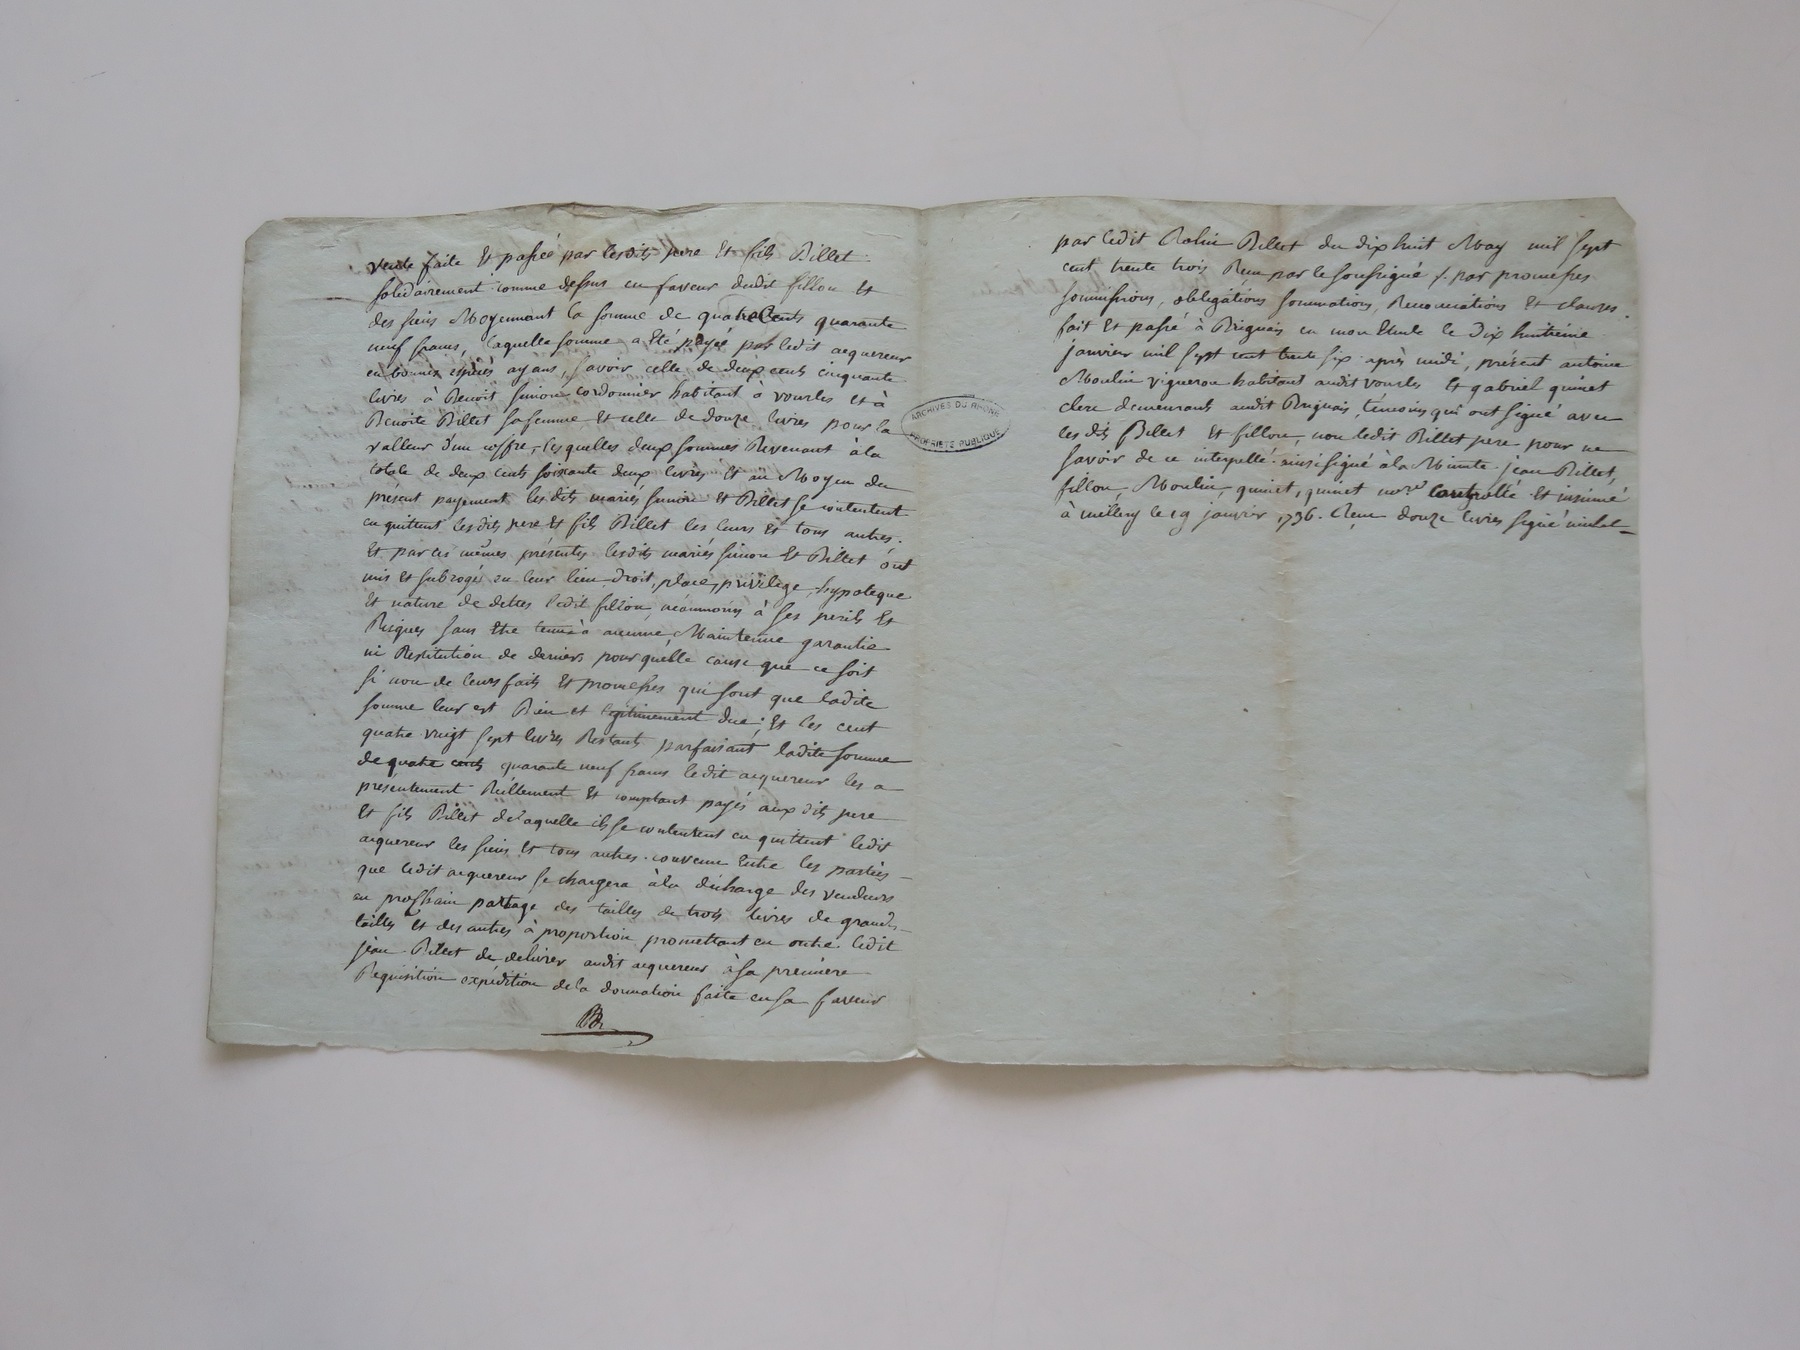 vente faite Et passée par lesdits pere Et fils Billet
solidairement comme dessus en faveur dudit fillon Et
des siens Moyennant la somme de quatre Cents quarante
neuf francs, laquelle somme a Eté payée par ledit acquereur
en bonnes espèces ayans, savoir celle de deux cents cinquante
livres à Benoit Simon cordonnier habitant à vourles et à
Benoite Billet sa femme Et celle de douze livres pour la
valleur d'un coffre, lesquelles deux sommes Revenant à la
totale de deux cents soixante deux livres Et au Moyen du
présent payement lesdits mariés Simon Et Billet se contentent
en quittent lesdits pere Et fils Billet les leurs Et tous autres.
Et par ces mêmes présentes lesdits mariés Simon Et Billet ont
mis et subrogé en leur lieu, droit, place, privilege, hypoteque
Et nature de dettes ledit fillon, néanmoins à ses perils Et
Risques sans Etre tenus à aucune Maintenue garantie
ni Restitution de deniers pour quelle cause que ce soit
si non de leurs faits Et promesses qui sont que ladite
somme leur est Bien et legitimement due; Et les cent
quatre vingt sept livres Restants parfaisant ladite somme
de quatre cents quarante neuf francs ledit acquereur les a
présentement Réellement Et comptant payés aux dits pere
Et fils Billet de laquelle ils se contentent en quittent ledit
acquereur les siens Et tous autres. convenu Entre les parties
que ledit acquereur se chargera à la décharge des vendeurs
au prochain partage des tailles de trois livres de grandes
tailles Et des autres à proportion promettant en outre ledit
jean Billet de delivrer audit acquereur à sa première
Requisition expédition de la donnation faite en sa faveur
par ledit Robin Billet du dix huit May mil sept
cent trente trois Reçu par le soussigné /. par promesses
soumissions, obligations sommations, Renonciations Et clauses.
fait Et passé à Brignais en mon Etude le dix huitième
janvier mil sept cent trente six après midi, présent antoine
Moulin vigneron habitant audit vourles Et gabriel quinet
clerc demeurants audit Brignais, témoins qui ont signé avec
les dits Billet Et fillon, non ledit Billet pere pour ne
savoir de ce interpellé. ainsi signé à la Minute. jean Billet,
fillon, Moulin, quinet, quinet nore Controllé Et insinué
à millery le 19 janvier 1736. Reçu douze livres signé
ARCHIVES DU RHÔNE
PROPRIÉTÉ PUBLIQUE